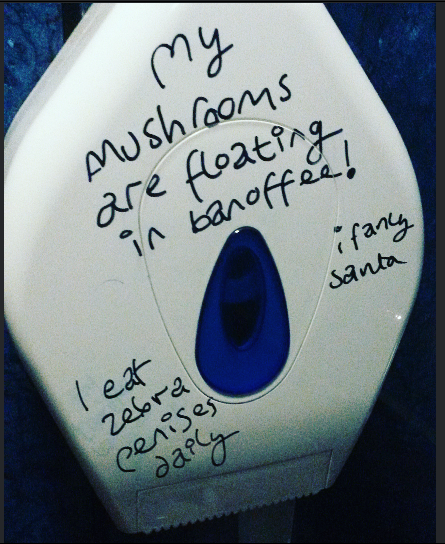 My
MUSHrOOMS
are floating
in banoffee!
i fancy
santa
I eat
zebra
penises
daily